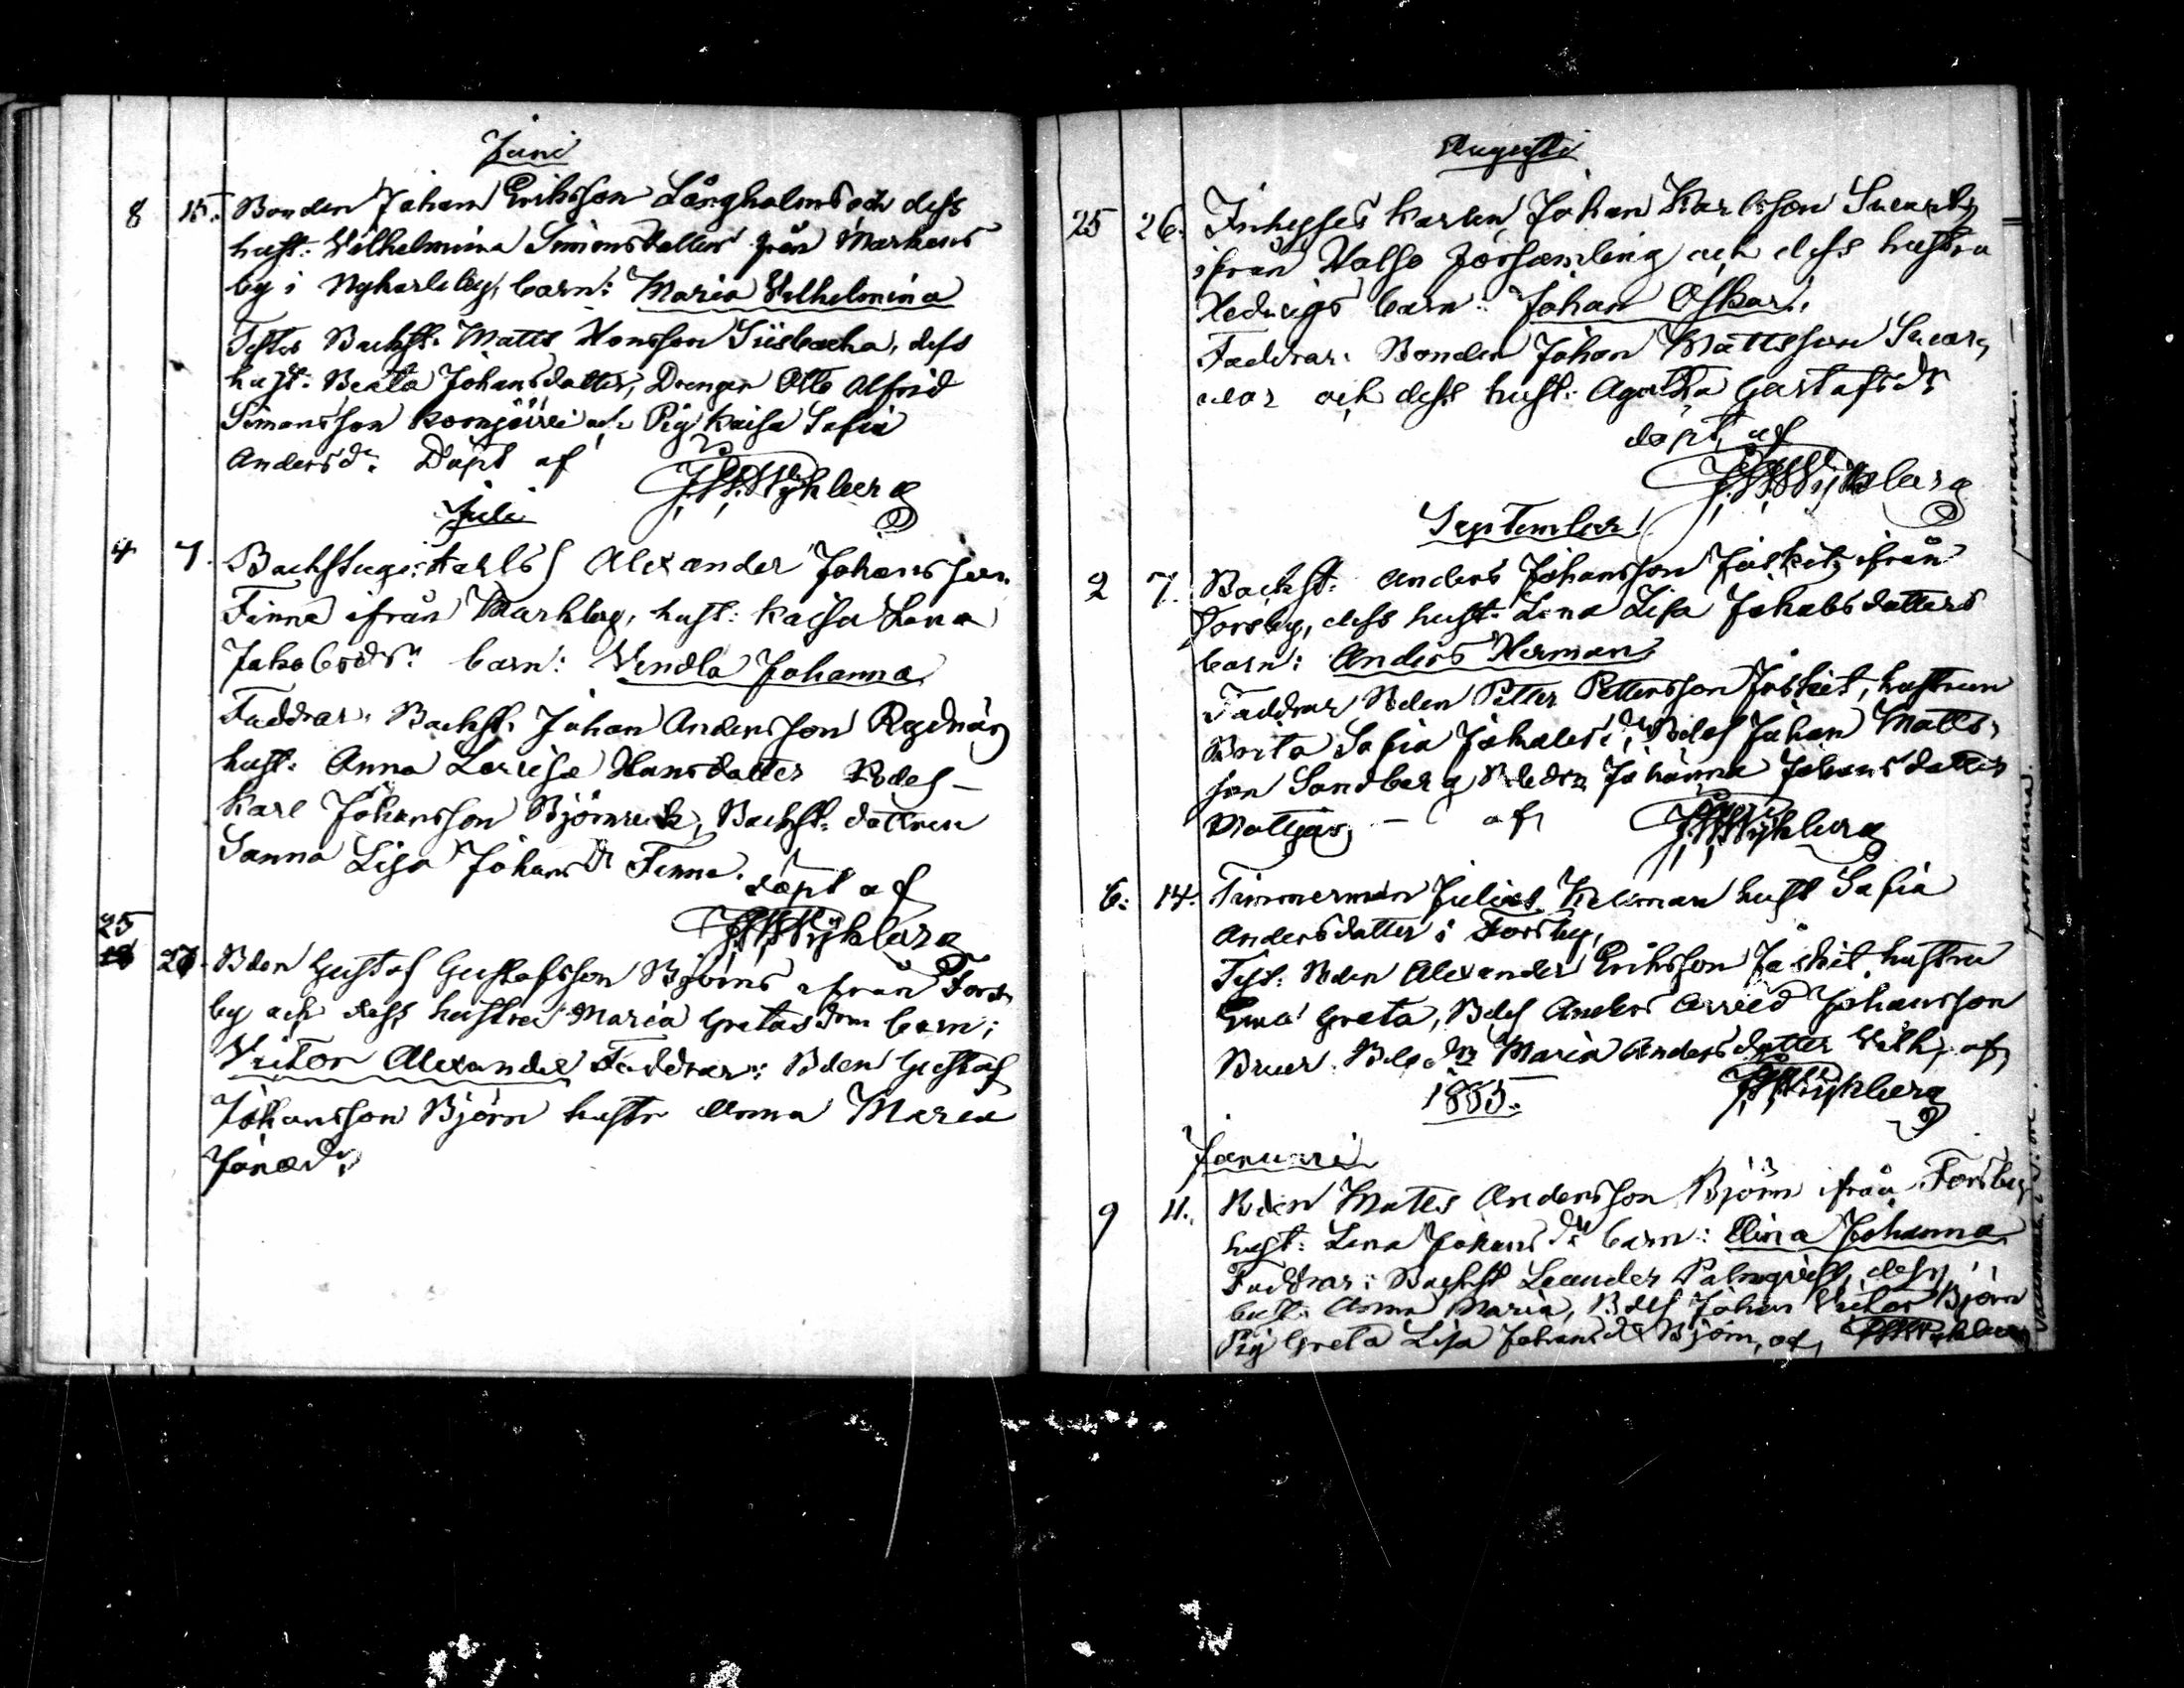 Juni
8 15. Bonden Johan Eriksson Långholms och dess
hust: Wilhelmina Simonsdatters från Markens
by i Nykarleby, barn: Maria Wilhelmina
Testes Backst. Matts Hansson Siisbacka, dess
hust: Beata Johansdatter, Drengen Otto Alfrid
Simonsson Komjärvi och Pig Kaisa Sofia
Andersdr. Döpt af J. W. Nykberg
Juli
4 7. Backstugukarls Alexander Johansson
Finne ifrån Markby, hust: Kaisa Lena
Jakobsdrs barn: Vendla Johanna
Faddrar: Backst. Johan Andersson Rydnäs
hust: Anna Lovisa Hansdatter Bdes-
Karl Johansson Björnvik, Backst: dottren
Sanna Lisa Johansdr Finne. döpt af
J. W. Nykberg
25
27. Bden Gustaf Gustafsson Björns ifrån Fors-
by och dess hustru Maria Gretas barn:
Victor Alexander Faddrar: Bden Gustaf
Johansson Björn hustr Anna Maria
Augusti
25 26. Inhyses karlen Johan Karlsson
ifrån församling och dess hustru
Hedvigs barn: Johan Oskar.
Faddrar: Bonden Johan Mattsson Svarg
var och dess hust: Agatha Gustafsdr
döpt af
J. W. Nykberg
September
2 7. Backst: Anders Johansson Jåskit, ifrån
Forsby, dess hust: Lena Lisa Jakobsdatters
barn: Anders Herman
Faddrar Bden Petter Pettersson Jåskit, hustrun
Brita Sofia Bdes Johan Matts-
son Sandberg Bdedr. Johanna Johansdatter
af J. W. Nykberg
6. 14. Timmerman Julius Kellman hust Sofia
Andersdatter i Forsby,
Test: Bden Alexander Eriksson Jåskit hustru
Greta, Bdes Anders Arvid Johansson
Bruer. Bdedr Maria Andersdatter af
1885. J. W. Nykberg
Januari
9 11. Bden Matts Andersson Björn ifrån Forsby
hust: Lena Johansdr barn: Elina Johanna
Faddrar: Backst Leander Palmqvist, dess
hust: Anna Maria, Bdes Johan Victor Björn
Pig Greta Lisa Johansdr Björn, af J. W. Nykberg